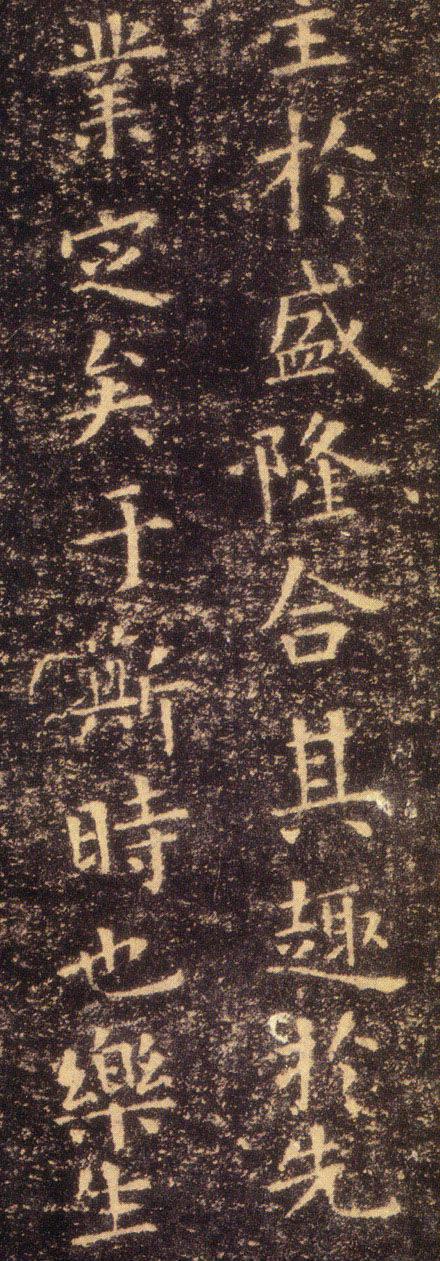 主於盛隆合其趣於先
業定矣于斯時也樂生